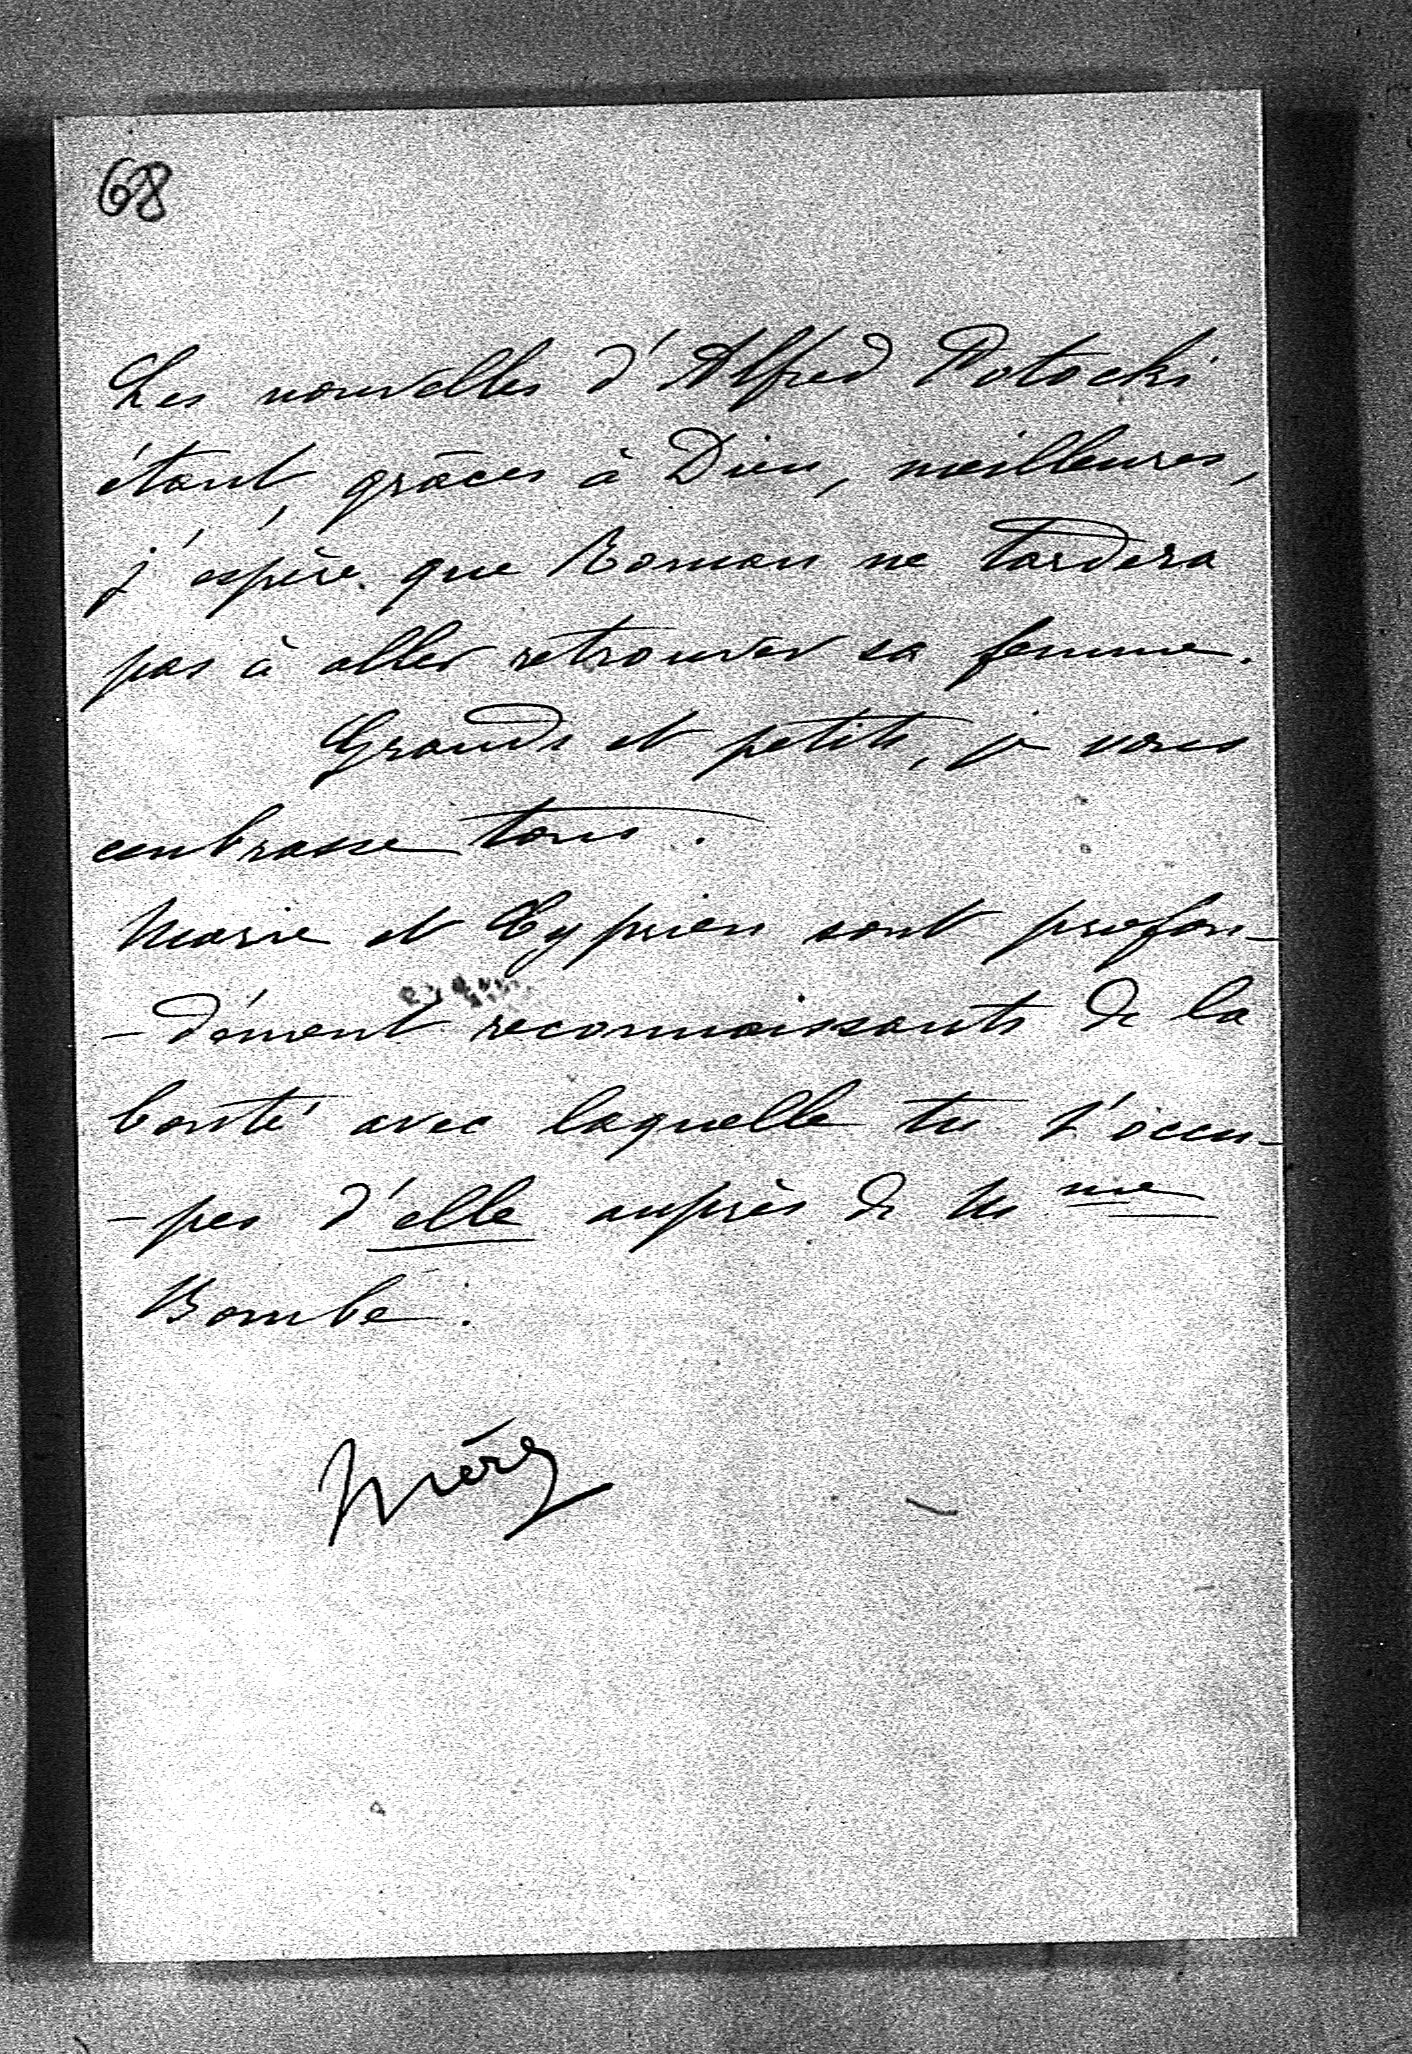 68
Les nouvelles d'Alfred Potocki
étant, grâces à Dieu, meilleures,
j'espère que Roman ne tardera
pas à aller retrouver sa femme.
Grands et petits, je vous
embrasse tous.
Marie et Cyprien sont profon-
-dément reconnaissants de la
bonté avec laquelle tu t'occu-
-pes d'elle auprès de M me
Bombé.